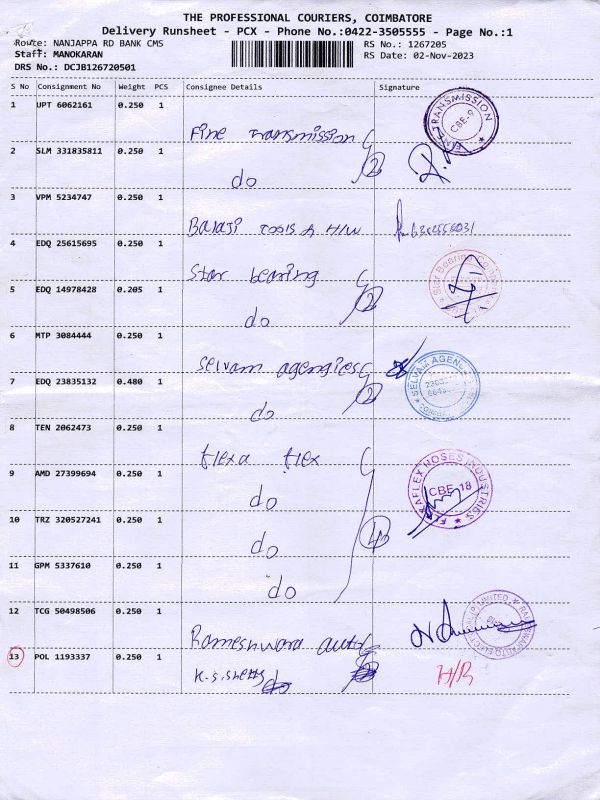 THE PROFESSIONAL COURIERS, COIMBATORE
Delivery Runsheet - PCX - Phone No.:0422-3505555 - Page No.:1
Route: NANJAPPA RD BANK CMS
RS No.: 1267205
Staff: MANOKARAN
RS Date: 02-Nov-2023
DRS No.: DCJB126720501
S No Consignment No Weight PCS Consignee Details Signature
1 UPT 6062161 0.250 1
Fine Transmission
FINE TRANSMISSION CBE-9
2 SLM 331835811 0.250 1
do
3 VPM 5234747 0.250 1
Balaji Tools & H/W
4 EDQ 25615695 0.250 1
Star bearing
Star Bearing
5 EDQ 14978428 0.205 1
do
6 MTP 3084444 0.250 1
Selvam agengies
SELVAM AGENC
7 EDQ 23835132 0.480 1
do
8 TEN 2062473 0.250 1
flexa flex
9 AMD 27399694 0.250 1
do
FLEXAFLEX HOSES INDUSTRIES CBE-18
10 TRZ 320527241 0.250 1
do
11 GPM 5337610 0.250 1
do
12 TCG 50498506 0.250 1
Rameshwara auto
13 POL 1193337 0.250 1
K.S.Shetty
H/R